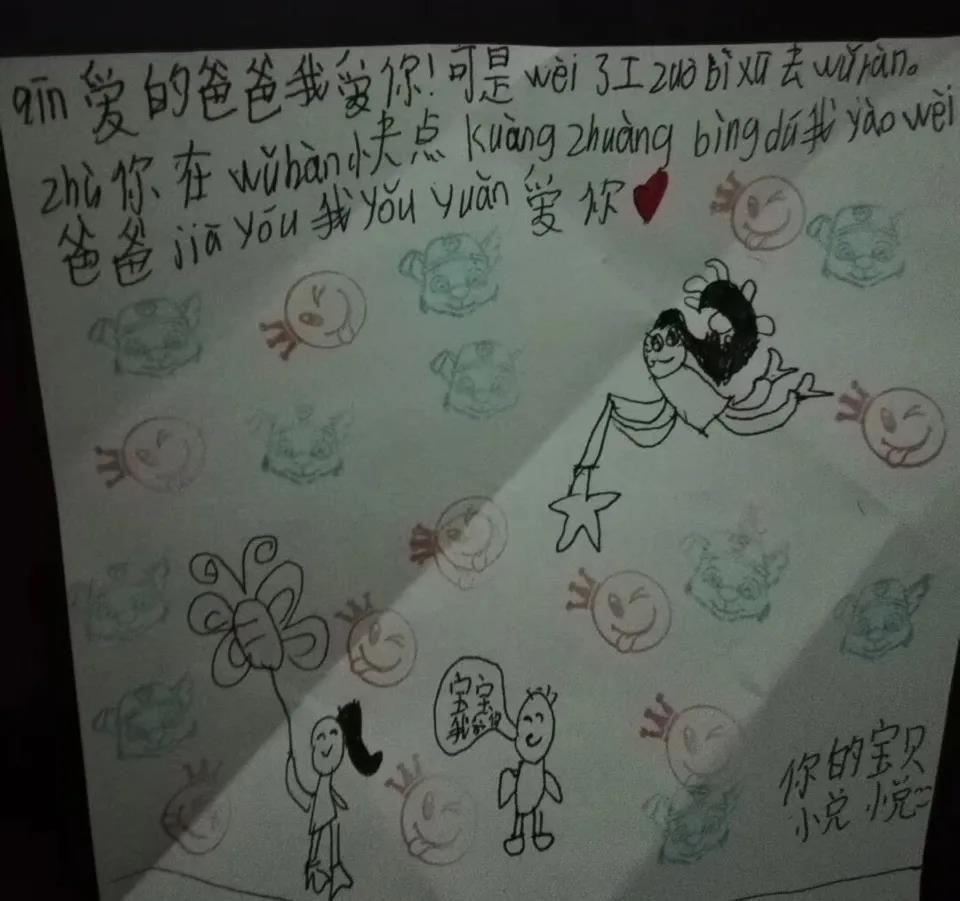 qīn 爱的爸爸我爱你!可是 wèi 了工 zuò bì xū 去 wǔ ràn。
zhù 你、在 wǔ hàn 快点 kuàng zhuàng bìng dú 我 yào wèi
爸爸 jiā yóu 我 yǒu yuǎn 爱你
宝宝
我
你的宝贝
小兑 小悦